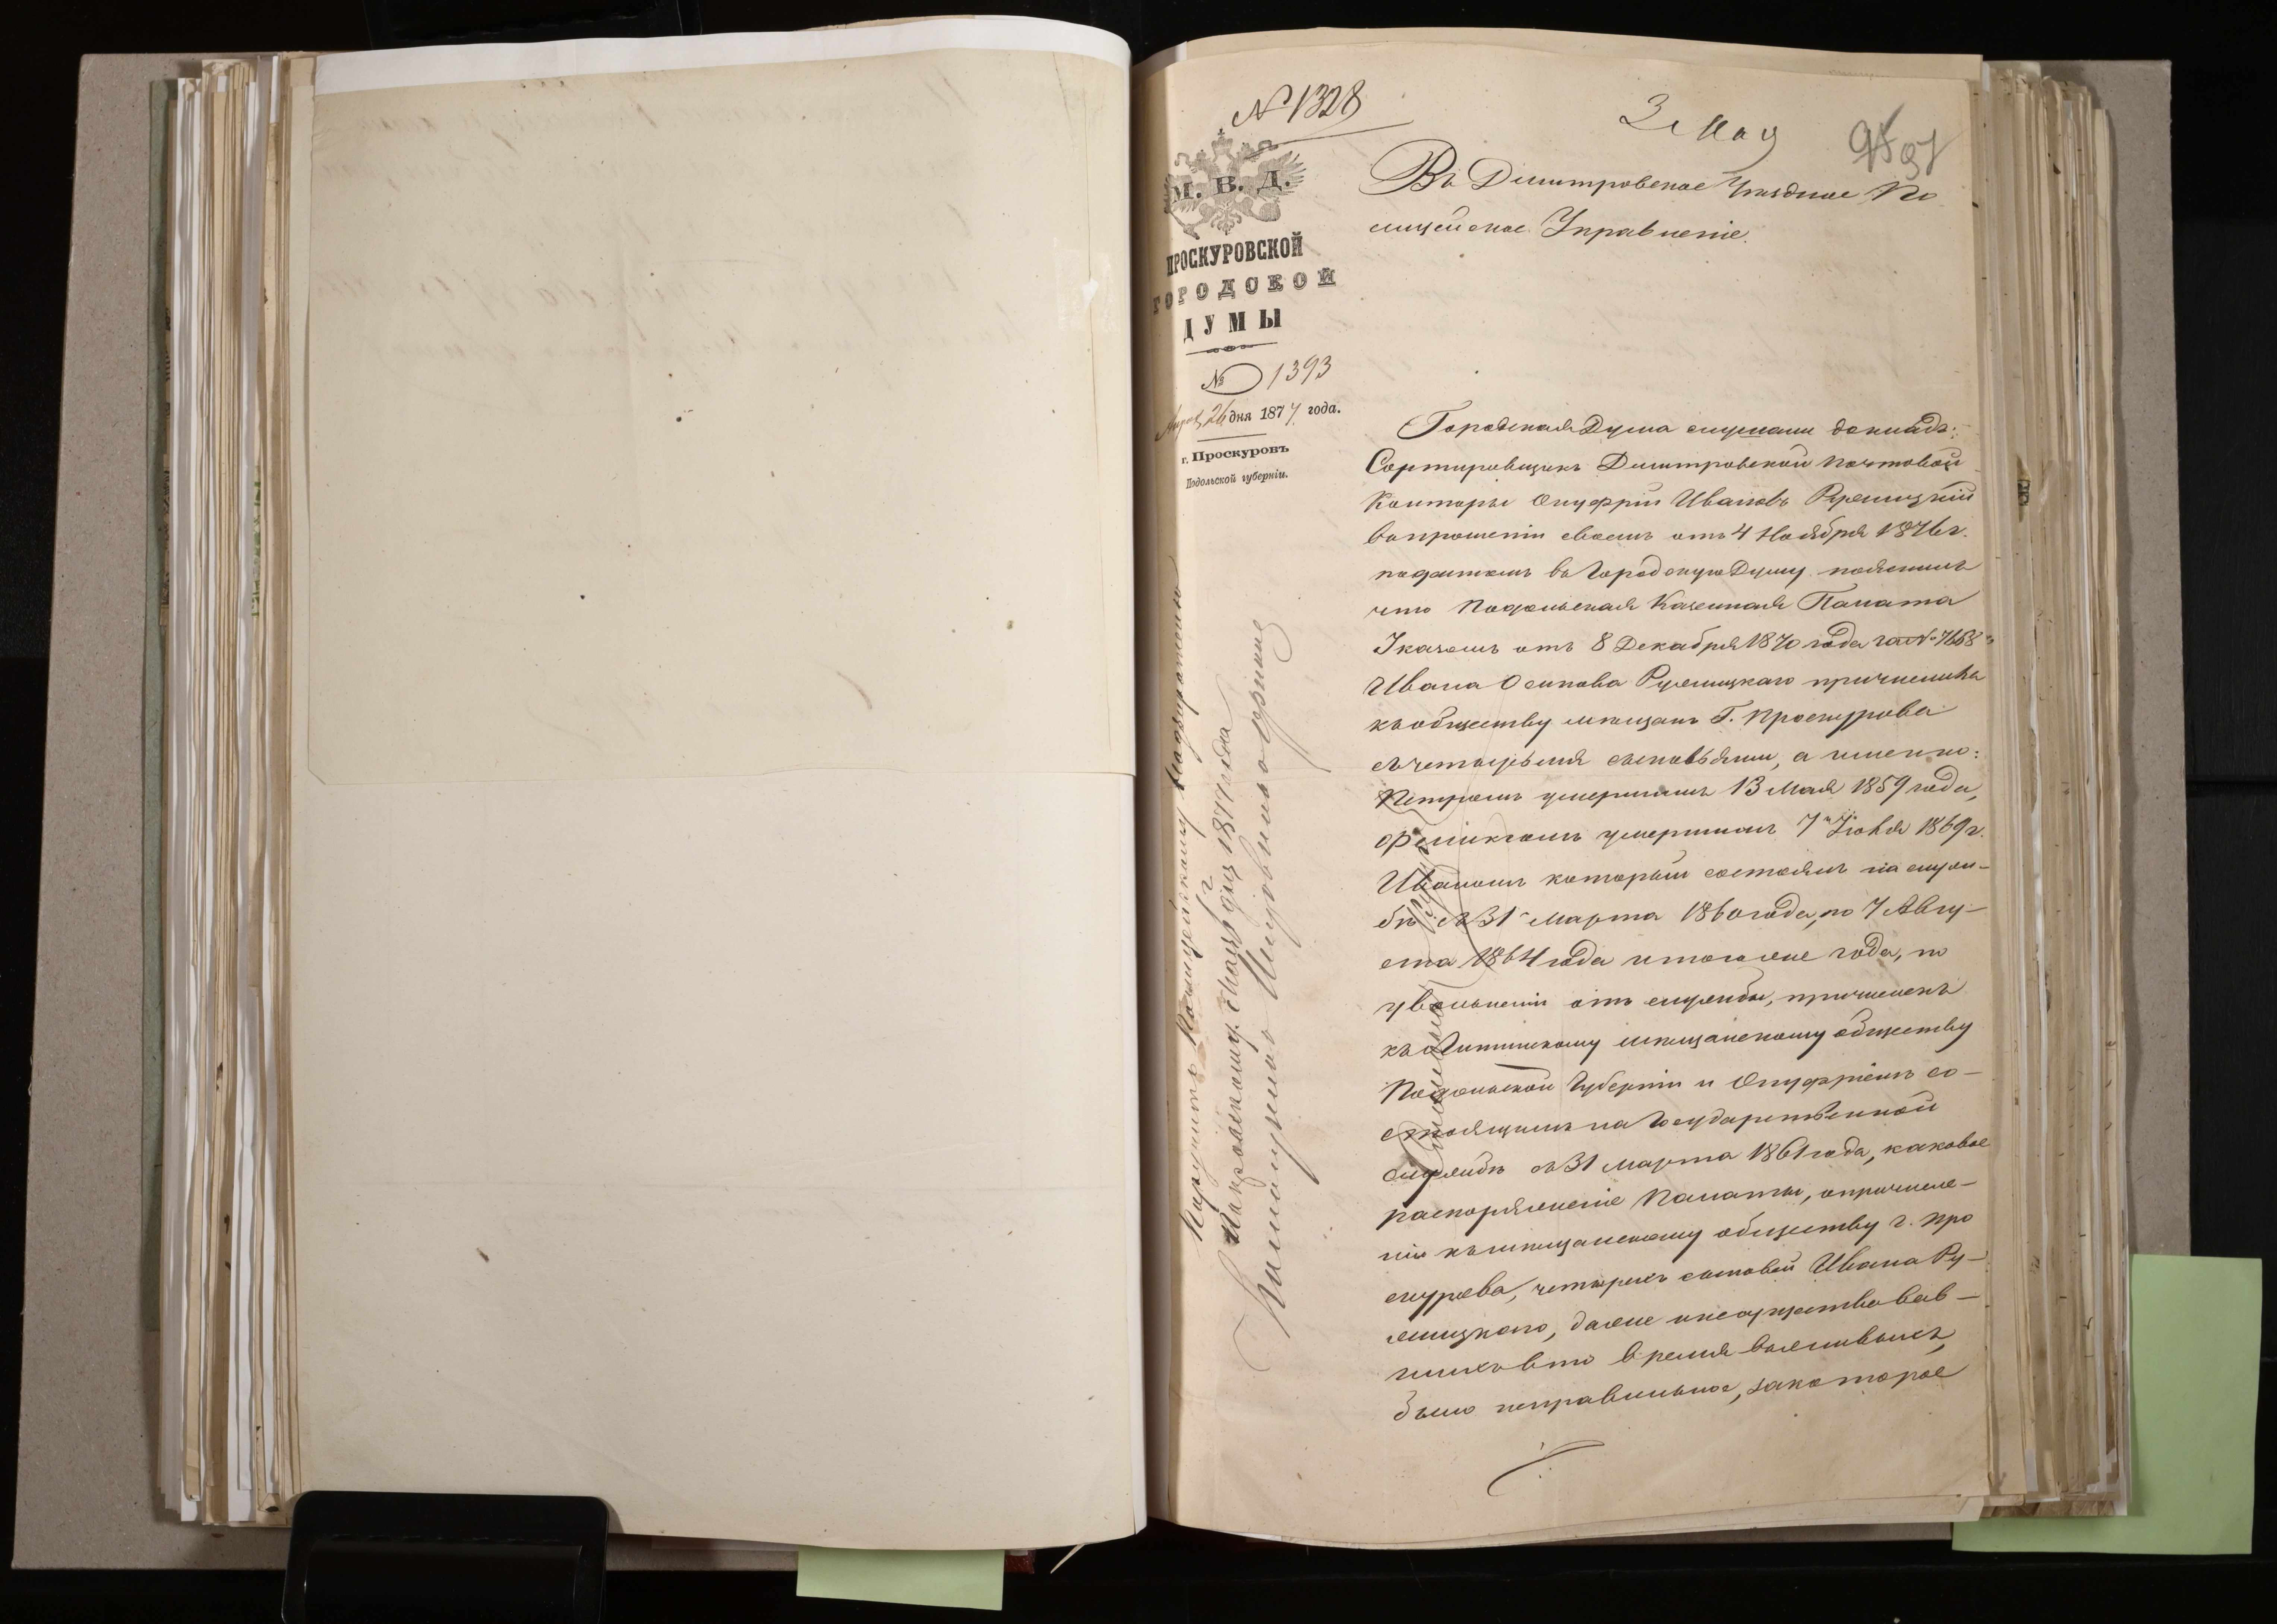 № 1328
3 Мая
95 97
М. В. Д.
ПРОСКУРОВСКОЙ
ГОРОДСКОЙ
ДУМЫ
№ 1393
Апреля 26 дня 1877 года.
г. Проскуровъ
Подольской губерніи.
Въ Дмитровское Уѣздное По
лицейское Управленіе.
Городская Дума слушали докладъ:
Сортировщикъ Дмитровской почтовой
Конторы Онуфрій Ивановъ Ружицкій
въ прошеніи своемъ отъ 4 Ноября 1876 г.
поданномъ въ Городскую Думу пояснилъ
что Подольская Казенная Палата
Указомъ отъ 8 Декабря 1870 года за № 7668
Ивана Осипова Ружицкаго причислила
къ обществу мѣщанъ г. Проскурова
съ четырьмя сыновьями, а именно:
Петромъ умершимъ 13 Мая 1859 года,
Феликсомъ умершимъ 7 Іюня 1869 г.
Иваномъ который состоялъ на служ-
бѣ съ 31 Марта 1860 года, по 7 Авгу-
ста 1864 года и того же года, по
увольненіи отъ службы, причисленъ
къ Литинскому мѣщанскому обществу
Подольской Губерніи и Онуфріемъ со-
стоящимъ на Государственной
службѣ съ 31 Марта 1861 года, каковое
распоряженіе Палаты, о причисле-
ніи къ мѣщанскому обществу г. Про
скурова, четырехъ сыновей Ивана Ру-
жицкаго, даже и несуществовав-
шихъ въ то время въ живыхъ,
было неправильное, за которое
Поручить Полицейскому Надзирателю
Покровскому. Мая 1877 года